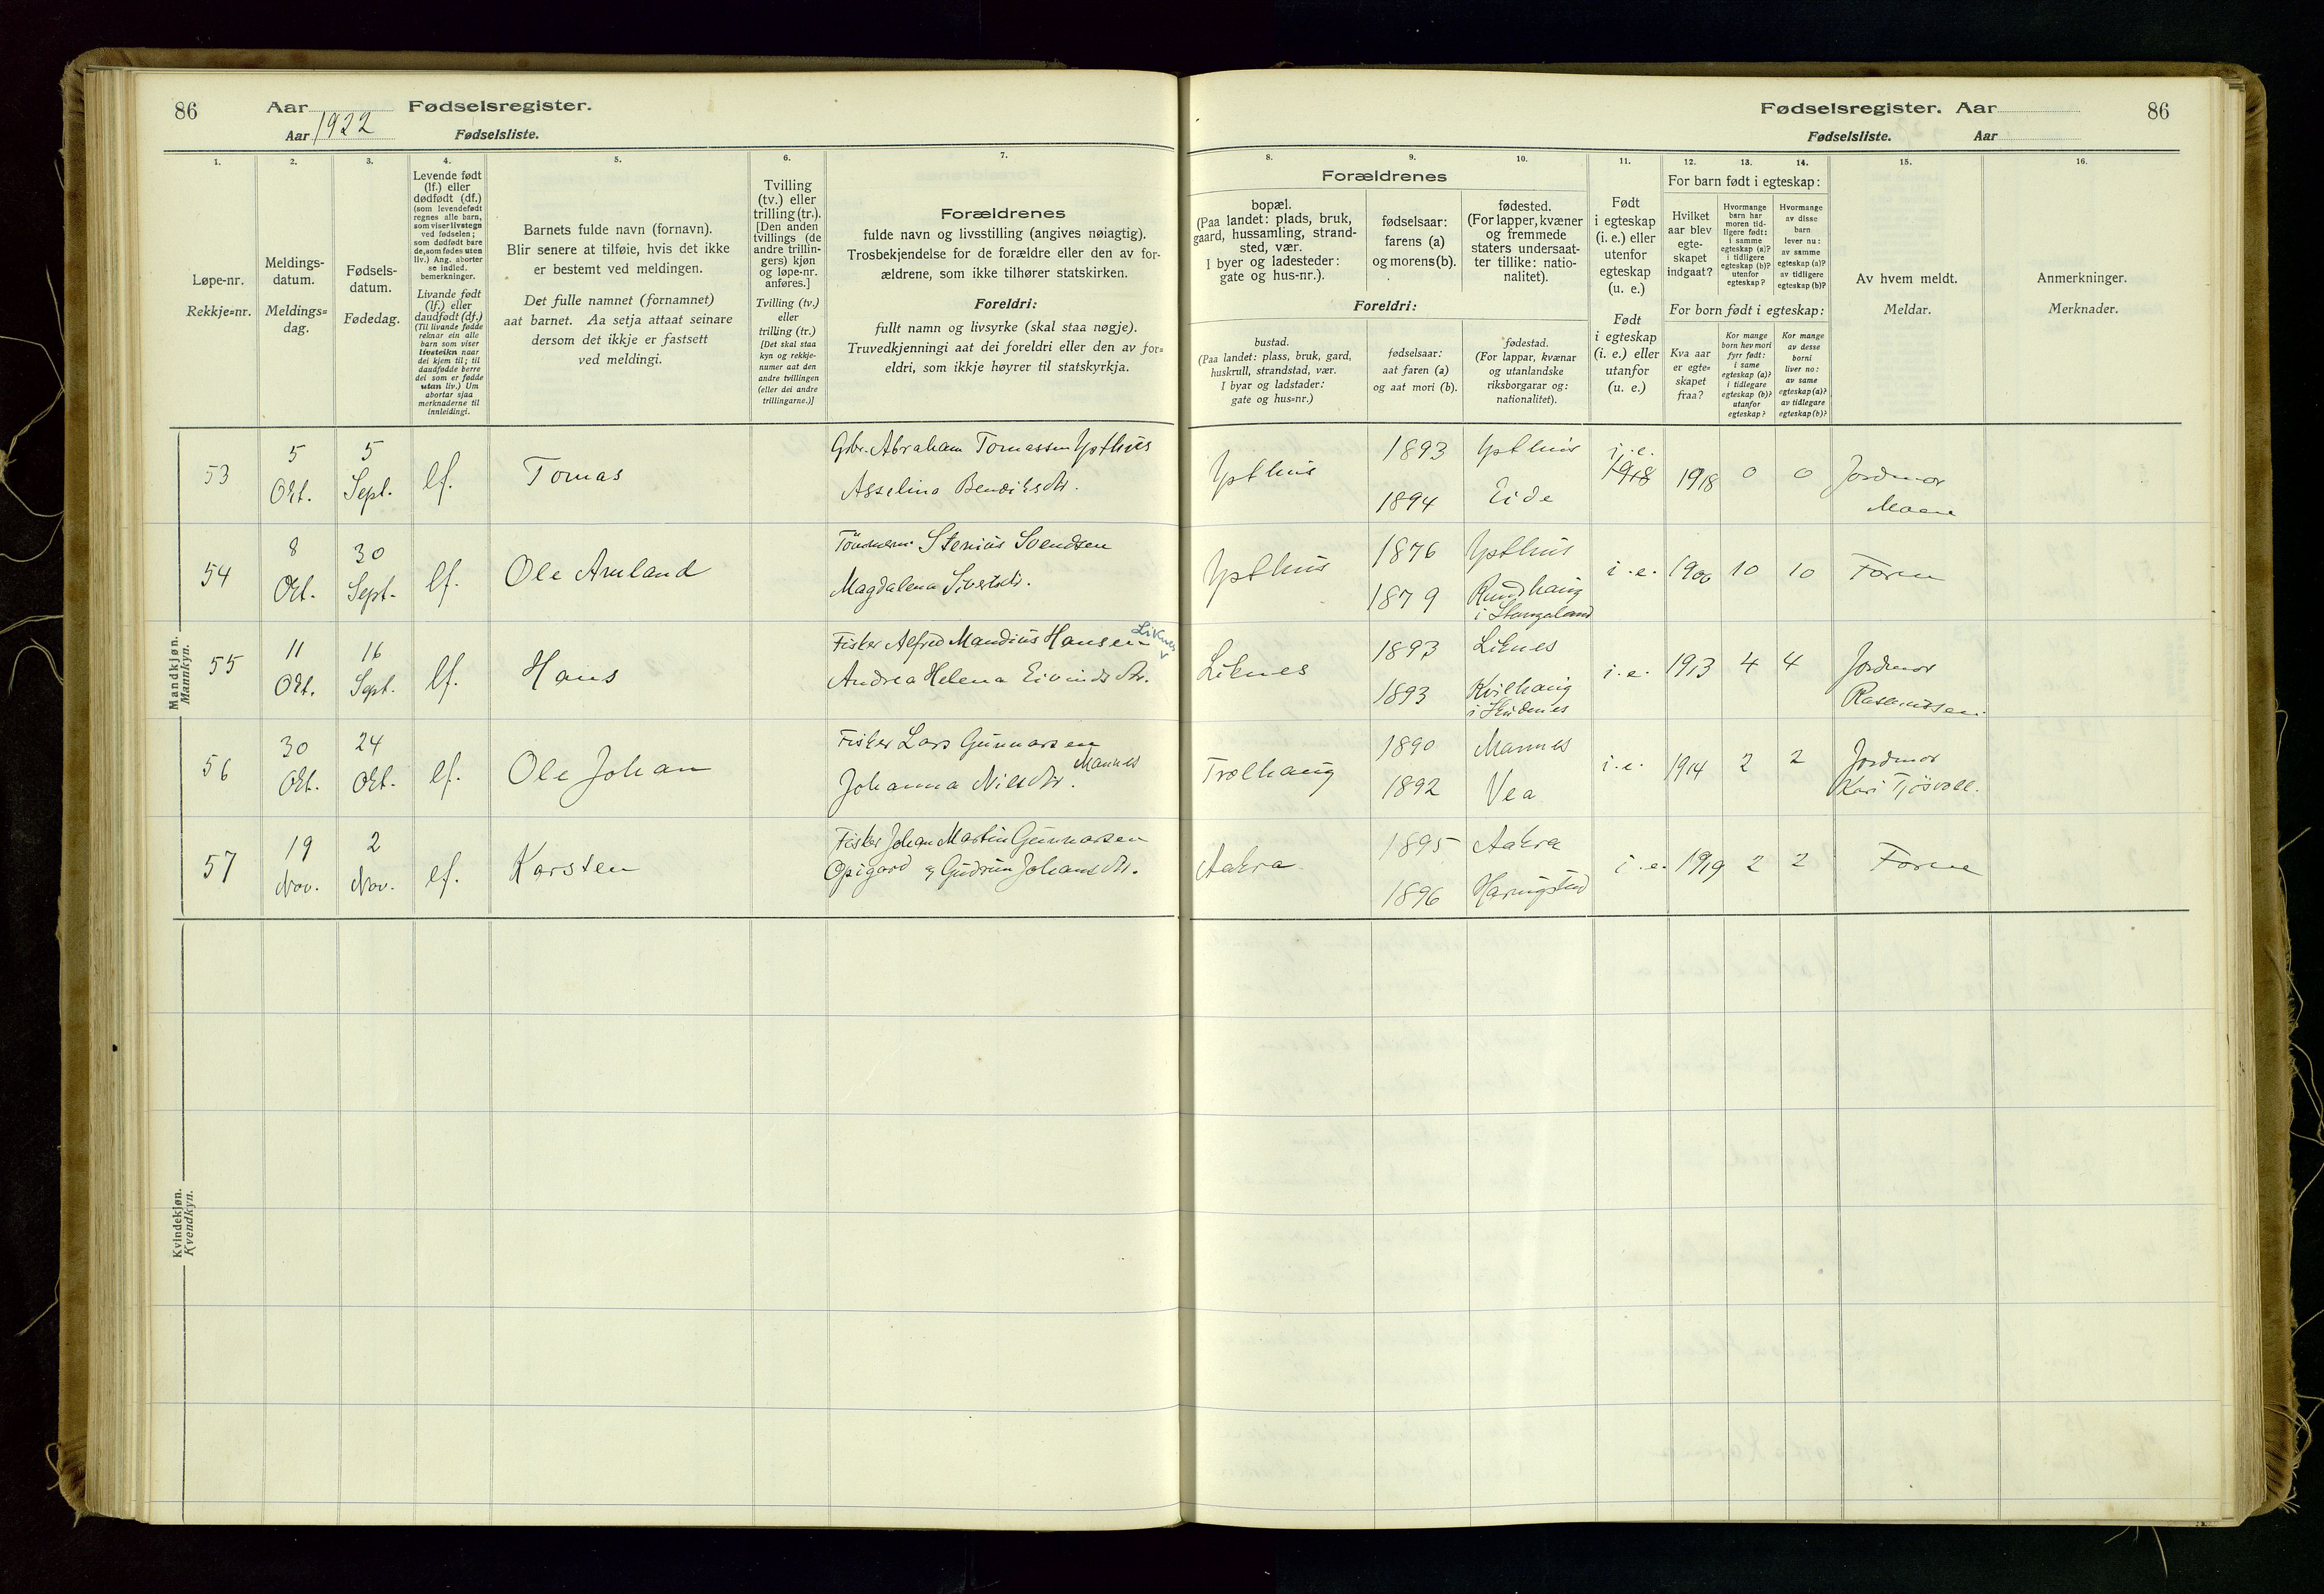 86 Aar Fødselsregister.
Aar 1922 Fødselsliste.
Fødselsregister. Aar 86
Fødselsliste. Aar
1. 2. 3. 4. 5. 6. 7. 8. 9. 10. 11. 12. 13. 14. 15. 16.
Løpe-nr.
Rekkje=nr.
Meldings-
datum.
Meldings=
dag.
Fødsels-
datum.
Fødedag.
Levende født
(lf.) eller
dødfødt (df.)
(som levendefødt
regnes alle barn,
som viser livstegn
ved fødselen;
som dødfødt bare
de, som fødes uten
liv.) Ang. aborter
se indled.
bemerkninger.
Livande født
(lf.) eller
daudfødt (df.)
(Til livande fødde
reknar ein alle
barn som viser
livsteikn naar
dei kjem til; til
daudfødde berre
dei som er fødde
utan liv.) Um
abortar sjaa
merknaderne til
innleidingi.
Barnets fulde navn (fornavn).
Blir senere at tilføie, hvis det ikke
er bestemt ved meldingen.
Det fulle namnet (fornamnet)
aat barnet. Aa setja attaat seinare
dersom det ikkje er fastsett
ved meldingi.
Tvilling
(tv.) eller
trilling (tr.).
[Den anden
tvillings (de
andre trillin-
gers) kjøn
og løpe-nr.
anføres.]
Tvilling (tv.)
eller
trilling (tr.)
[Det skal staa
kyn og rekkje-
numer aat den
andre tvillingen
(eller dei andre
trillingarne.)]
Forældrenes
fulde navn og livsstilling (angives nøiagtig).
Trosbekjendelse for de forældre eller den av for-
ældrene, som ikke tilhører statskirken.
Foreldri:
fullt namn og livsyrke (skal staa nøgje).
Truvedkjenningi aat dei foreldri eller den av for=
eldri, som ikkje høyrer til statskyrkja.
Forældrenes
bopæl.
(Paa landet: plads, bruk,
gaard, hussamling, strand-
sted, vær.
I byer og ladesteder:
gate og hus-nr.).
fødselsaar:
farens (a)
og morens (b).
fødested.
(For lapper, kvæner
og fremmede
staters undersaat-
ter tillike: natio-
nalitet).
Foreldri:
bustad.
(Paa landet: plass, bruk, gard,
huskrull, strandstad, vær.
I byar og ladstader:
gate og hus=nr.)
fødselsaar:
aat faren (a)
og aat mori (b).
fødestad.
(For lappar, kvænar
og utanlandske
riksborgarar og:
nationalitet).
Født
i egteskap
(i. e.) eller
utenfor
egteskap
(u. e.)
Født
i egteskap
(i. e.) eller
utanfor
(u. e.)
For barn født i egteskap:
Hvilket
aar blev
egte-
skapet
indgaat?
Hvormange
barn har
moren tid-
ligere født:
i samme
egteskap (a)?
i tidligere
egteskap (b)?
utenfor
egteskap?
Hvormange
av disse
barn
lever nu:
av samme
egteskap (a)?
av tidligere
egteskap (b)?
For born født i egteskap:
Kva aar
er egte=
skapet
fraa?
Kor mange
born hev mori
fyrr født:
i same
egteskap (a)?
i tidlegare
egteskap (b)?
utanfor
egteskap?
Kor mange
av desse
borni
liver no:
av same
egteskap (a)?
av tidlegare
egteskap (b)?
Av hvem meldt.
Meldar.
Anmerkninger.
Merknader.
Mandkjøn.
Mannkyn.
53 5 Okt. 5 Sept. lf. Tomas
Gbr. Abraham Tomassen Ypthus
Asselina Bendiksdtr.
Ypthus 1893 Ypthus
1894 Eide
i. e. 1918 1918 0 0 Jordmor
Moene
54 8 Okt. 30 Sept. lf. Ole Arnland
Stenius Svendsen
Magdalena Sivertsdtr.
Ypthus 1876 Ypthus
1879 Rundhaug
i Stangeland
i. e. 1900 10 10 Foren
55 11 Okt. 16 Sept. lf. Hans
Fisker Alfred Mandius Hansen Liknes
Andrea Helena Eivindsdtr.
Liknes 1893 Liknes
1893 Kvilhaug
i Hudnes
i. e. 1913 4 4 Jordmor
Rasmussen
56 30 Okt. 24 Okt. lf. Ole Johan
Fisker Lars Gunnarsen
Mannes
Johanna Nilsdtr.
Trælhaug 1890 Mannes
1892 Vea
i. e. 1914 2 2 Jordmor
Kari Tjösvoll.
57 19 Nov. 2 Nov. lf. Karsten
Fisker Johan Martin Gunnarsen
Opigard og Gudrun Johansdtr.
Aakra 1895 Aakra
1896
i. e. 1919 2 2 Foren
Kvindekjøn.
Kvendkyn.